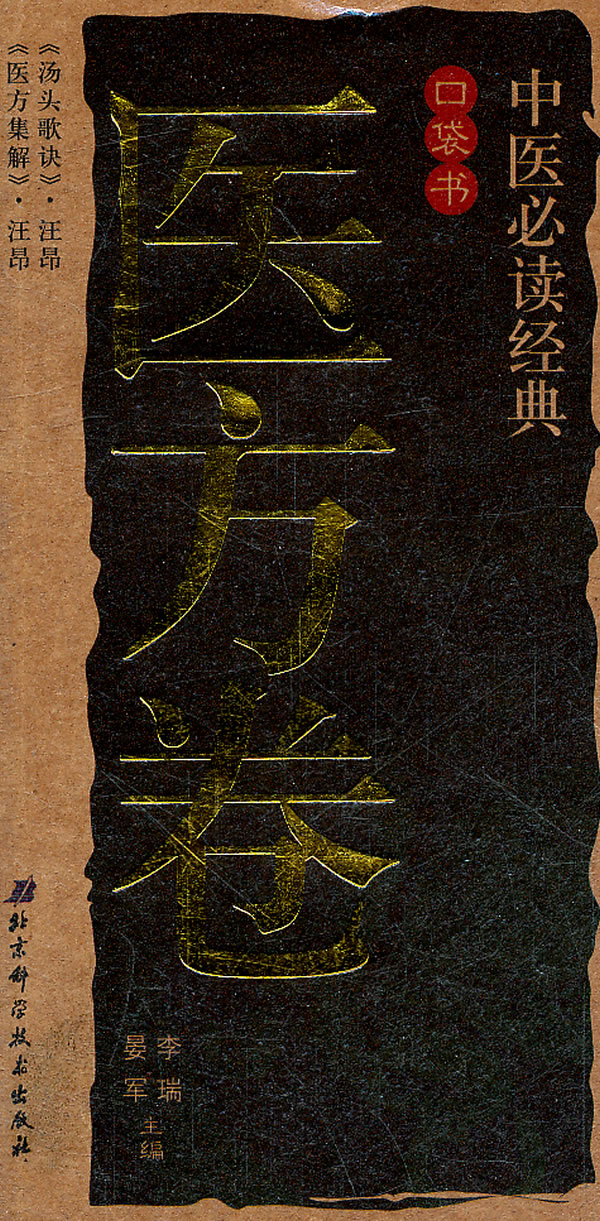 中医必读经典
口袋书
医方卷
李瑞
晏军
主编
《汤头歌诀》·汪昂
《医方集解》·汪昂
北京科学技术出版社